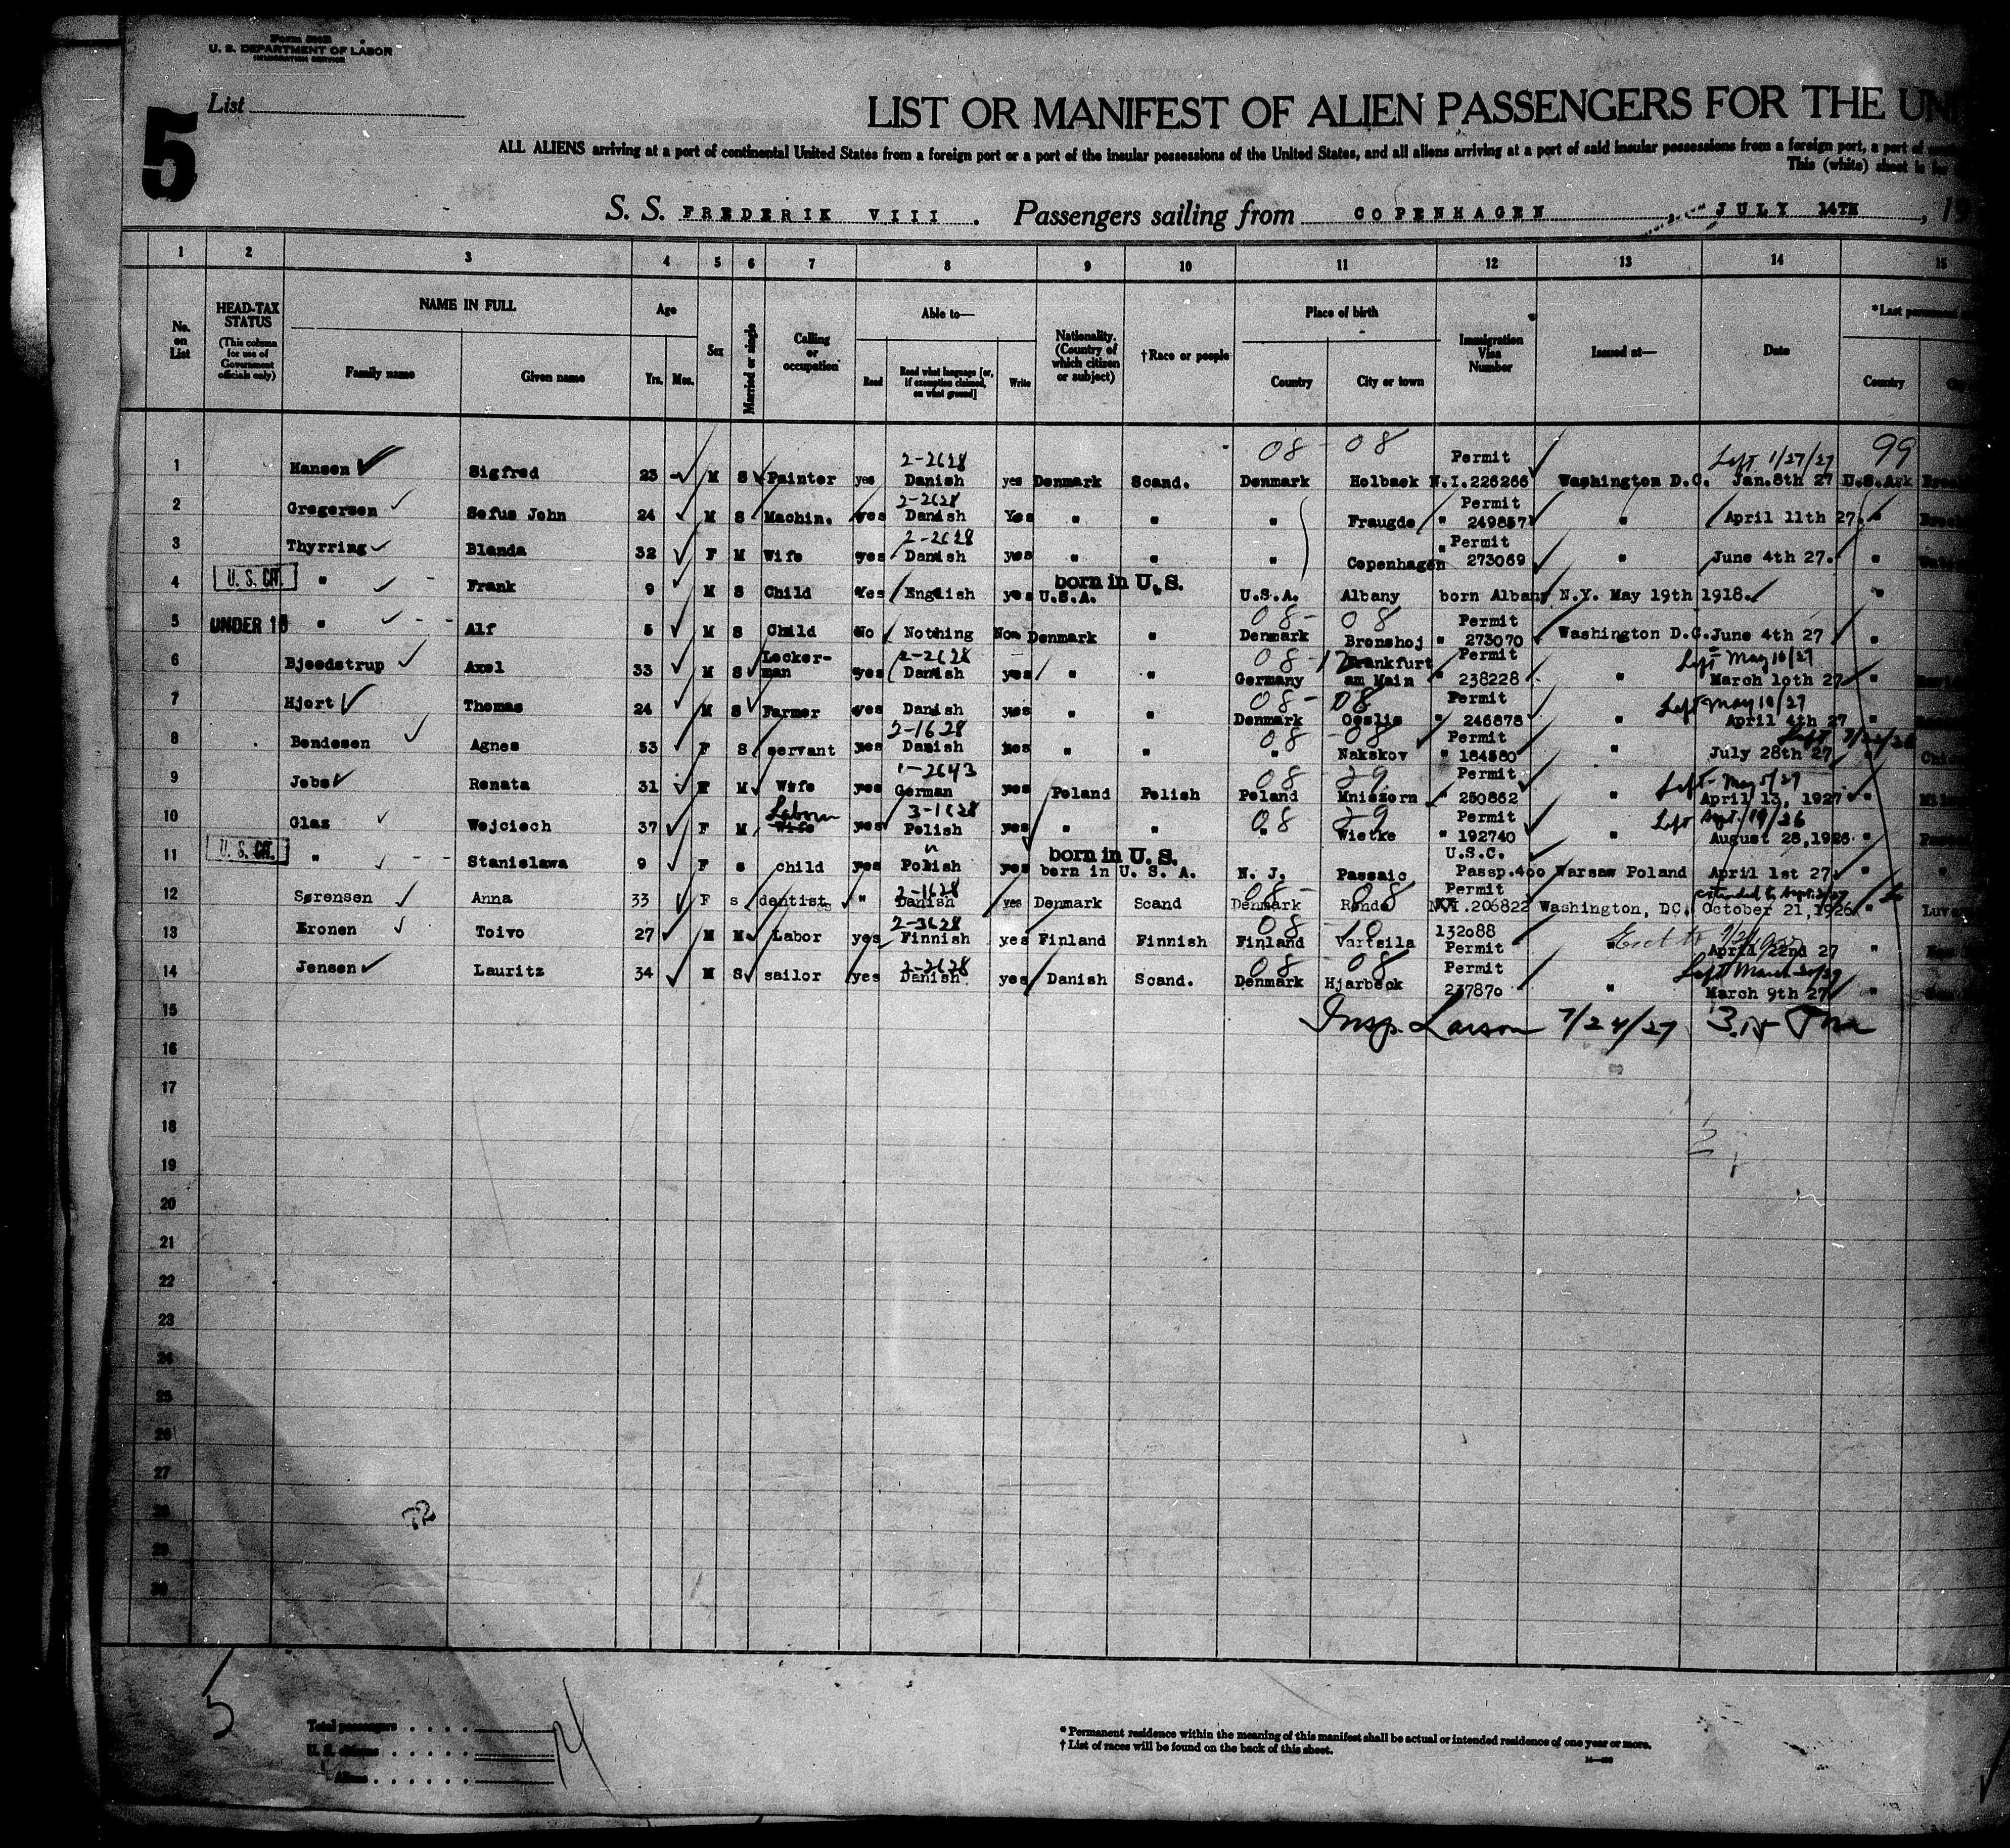 Form 500B
U. S. DEPARTMENT OF LABOR
IMMIGRATION SERVICE
5
List
LIST OR MANIFEST OF ALIEN PASSENGERS FOR THE UN
ALL ALIENS arriving at a port of continental United States from a foreign port or a port of the insular possessions of the United States, and all aliens arriving at a port of said insular possessions from a foreign port, a port of
This (white) sheet is for
S. S. FREDERIK VIII. Passengers sailing from COPENHAGEN, JULY 14TH, 19
1 2 3 4 5 6 7 8 9 10 11 12 13 14 15
No. on List
HEAD-TAX STATUS (This column for use of Government officials only)
NAME IN FULL
Family name Given name
Age
Yrs. Mos.
Sex
Married or single
Calling or occupation
Able to—
Read Read what language [or, if exemption claimed, on what ground] Write
Nationality. (Country of which citizen or subject)
†Race or people
Place of birth
Country City or town
Immigration Visa Number
Issued at—
Date
*Last permanent
Country
08 - 08 Permit Left 1/27/27 99
1 Hansen Sigfred 23 M S Painter yes 2-2628 Danish yes Denmark Scand. Denmark Holbaek N.I.226266 Washington D.C. Jan.8th 27 U.S.A.
2 Gregersen Sofus John 24 M S Machin. yes 2-2628 Danish Yes " " " Fraugde Permit " 249857 " April 11th 27. "
3 Thyrring Blanda 32 F M Wife yes 2-2628 Danish yes " " " Copenhagen Permit " 273069 " June 4th 27. "
4 U. S. CIT. " Frank 9 M S Child Yes English yes born in U. S. U.S.A. " U.S.A. Albany born Albany N.Y. May 19th 1918. "
5 UNDER 16 " Alf 5 M S Child No Nothing Non Denmark " 08 - 08 Denmark Bronshoj Permit " 273070 Washington D.C. June 4th 27 "
6 Bjeedstrup Axel 33 M S Lockerman yes 2-2628 Danish yes " " 08 - 12 Germany Frankfurt am Main Permit " 238228 " Left May 10/27 March 10th 27 "
7 Hjort Thomas 24 M S Farmer yes Danish yes " " 08 - 08 Denmark Permit " 246878 " Left May 10/27 April 4th 27 "
8 Bendesen Agnes 53 F S servant yes 2-1628 Danish yes " " 08 - 08 " Nakskov Permit " 184580 " Left July 28th 27
9 Jebs Renata 31 F M Wife yes 1-2643 German yes Poland Polish 08 29 Poland Mniszorn Permit " 250862 " Left May 5/27 April 13, 1927 "
10 Glaz Wojciech 37 F M Labour Wife yes 3-1628 Polish yes " " 08 29 " Wietke Permit " 192740 " Left Sept. 19/26 August 28,1926 "
11 U. S. CIT. " Stanislawa 9 F s child yes Polish yes born in U. S. born in U. S. A. N. J. Passaic U.S.C. Passp.400 Warsaw Poland April 1st 27 "
12 Sørensen Anna 33 F s dentist " 2-1628 Danish yes Denmark Scand 08 - 08 Denmark Rønde Permit N.I.206822 Washington, DC. extended to Sept. October 21,1926 "
13 Eronen Toivo 27 M M Labor yes 2-3628 Finnish yes Finland Finnish 08 - 10 Finland Vartsila 132088 Permit April 22nd 27 "
14 Jensen Lauritz 34 M S sailor yes 2-2628 Danish yes Danish Scand. 08 - 08 Denmark Hjarbeck Permit 237870 " Left March March 9th 27 "
15 Insp. Larson 7/24/27 3.15 Pm
16
17
18
19
20
21
22
23
24
25
26
27
28
29
30
72
5
Total passengers
U. S. citizens
Aliens
14
* Permanent residence within the meaning of this manifest shall be actual or intended residence of one year or more.
† List of races will be found on the back of this sheet.